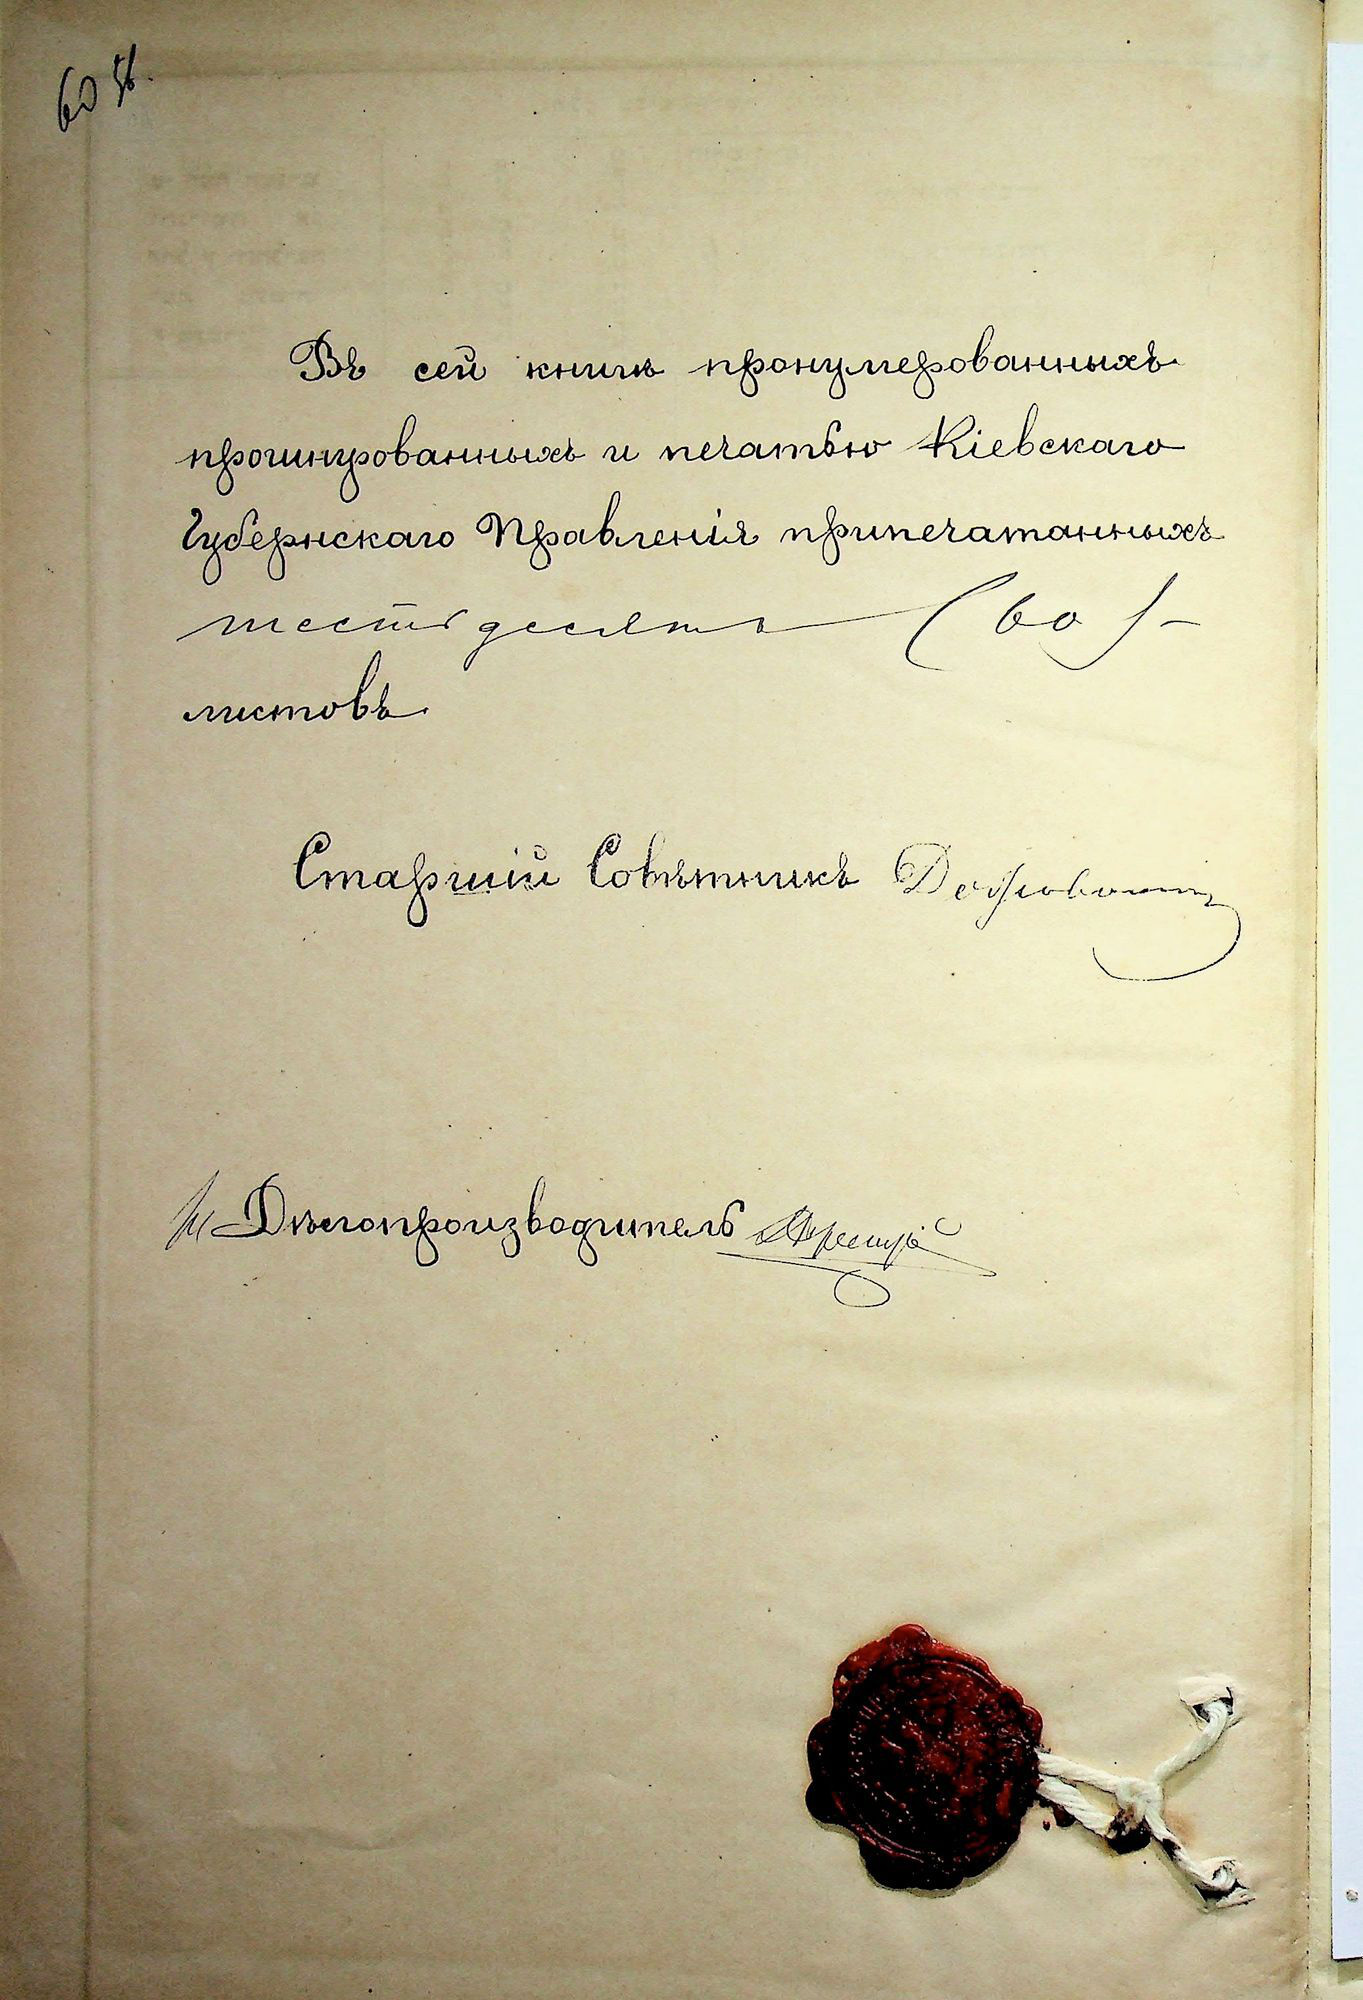 60
Въ сей книгѣ пронумерованныхъ
прошнурованныхъ и печатью Кіевскаго
Губернскаго Правленія припечатанныхъ
шестьдесятъ (60)-
листовъ
Старшій Совѣтникъ
Дѣлопроизводитель